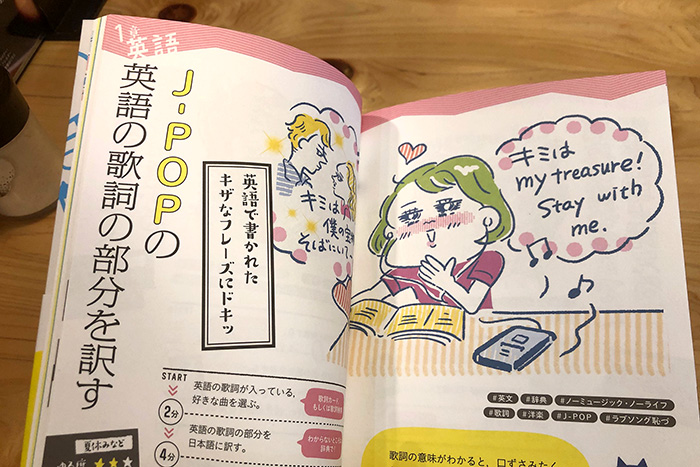 1章
英語
J-POPの
英語の歌詞の部分を訳す
英語で書かれた
キザなフレーズにドキッ
キミは
僕の宝
そばにいて
キミは
my treasure!
Stay with
me.
START
2分
英語の歌詞が入っている、
好きな曲を選ぶ。
歌詞カード
もしくは歌詞
4分
英語の歌詞の部分を
日本語に訳す。
わからないところは
辞書で!
夏休みなど
#英文 #辞典 #ノーミュージック・ノーライフ
#歌詞 #洋楽 #J-POP #ラブソング恥づ
歌詞の意味がわかると、口ずさみたく